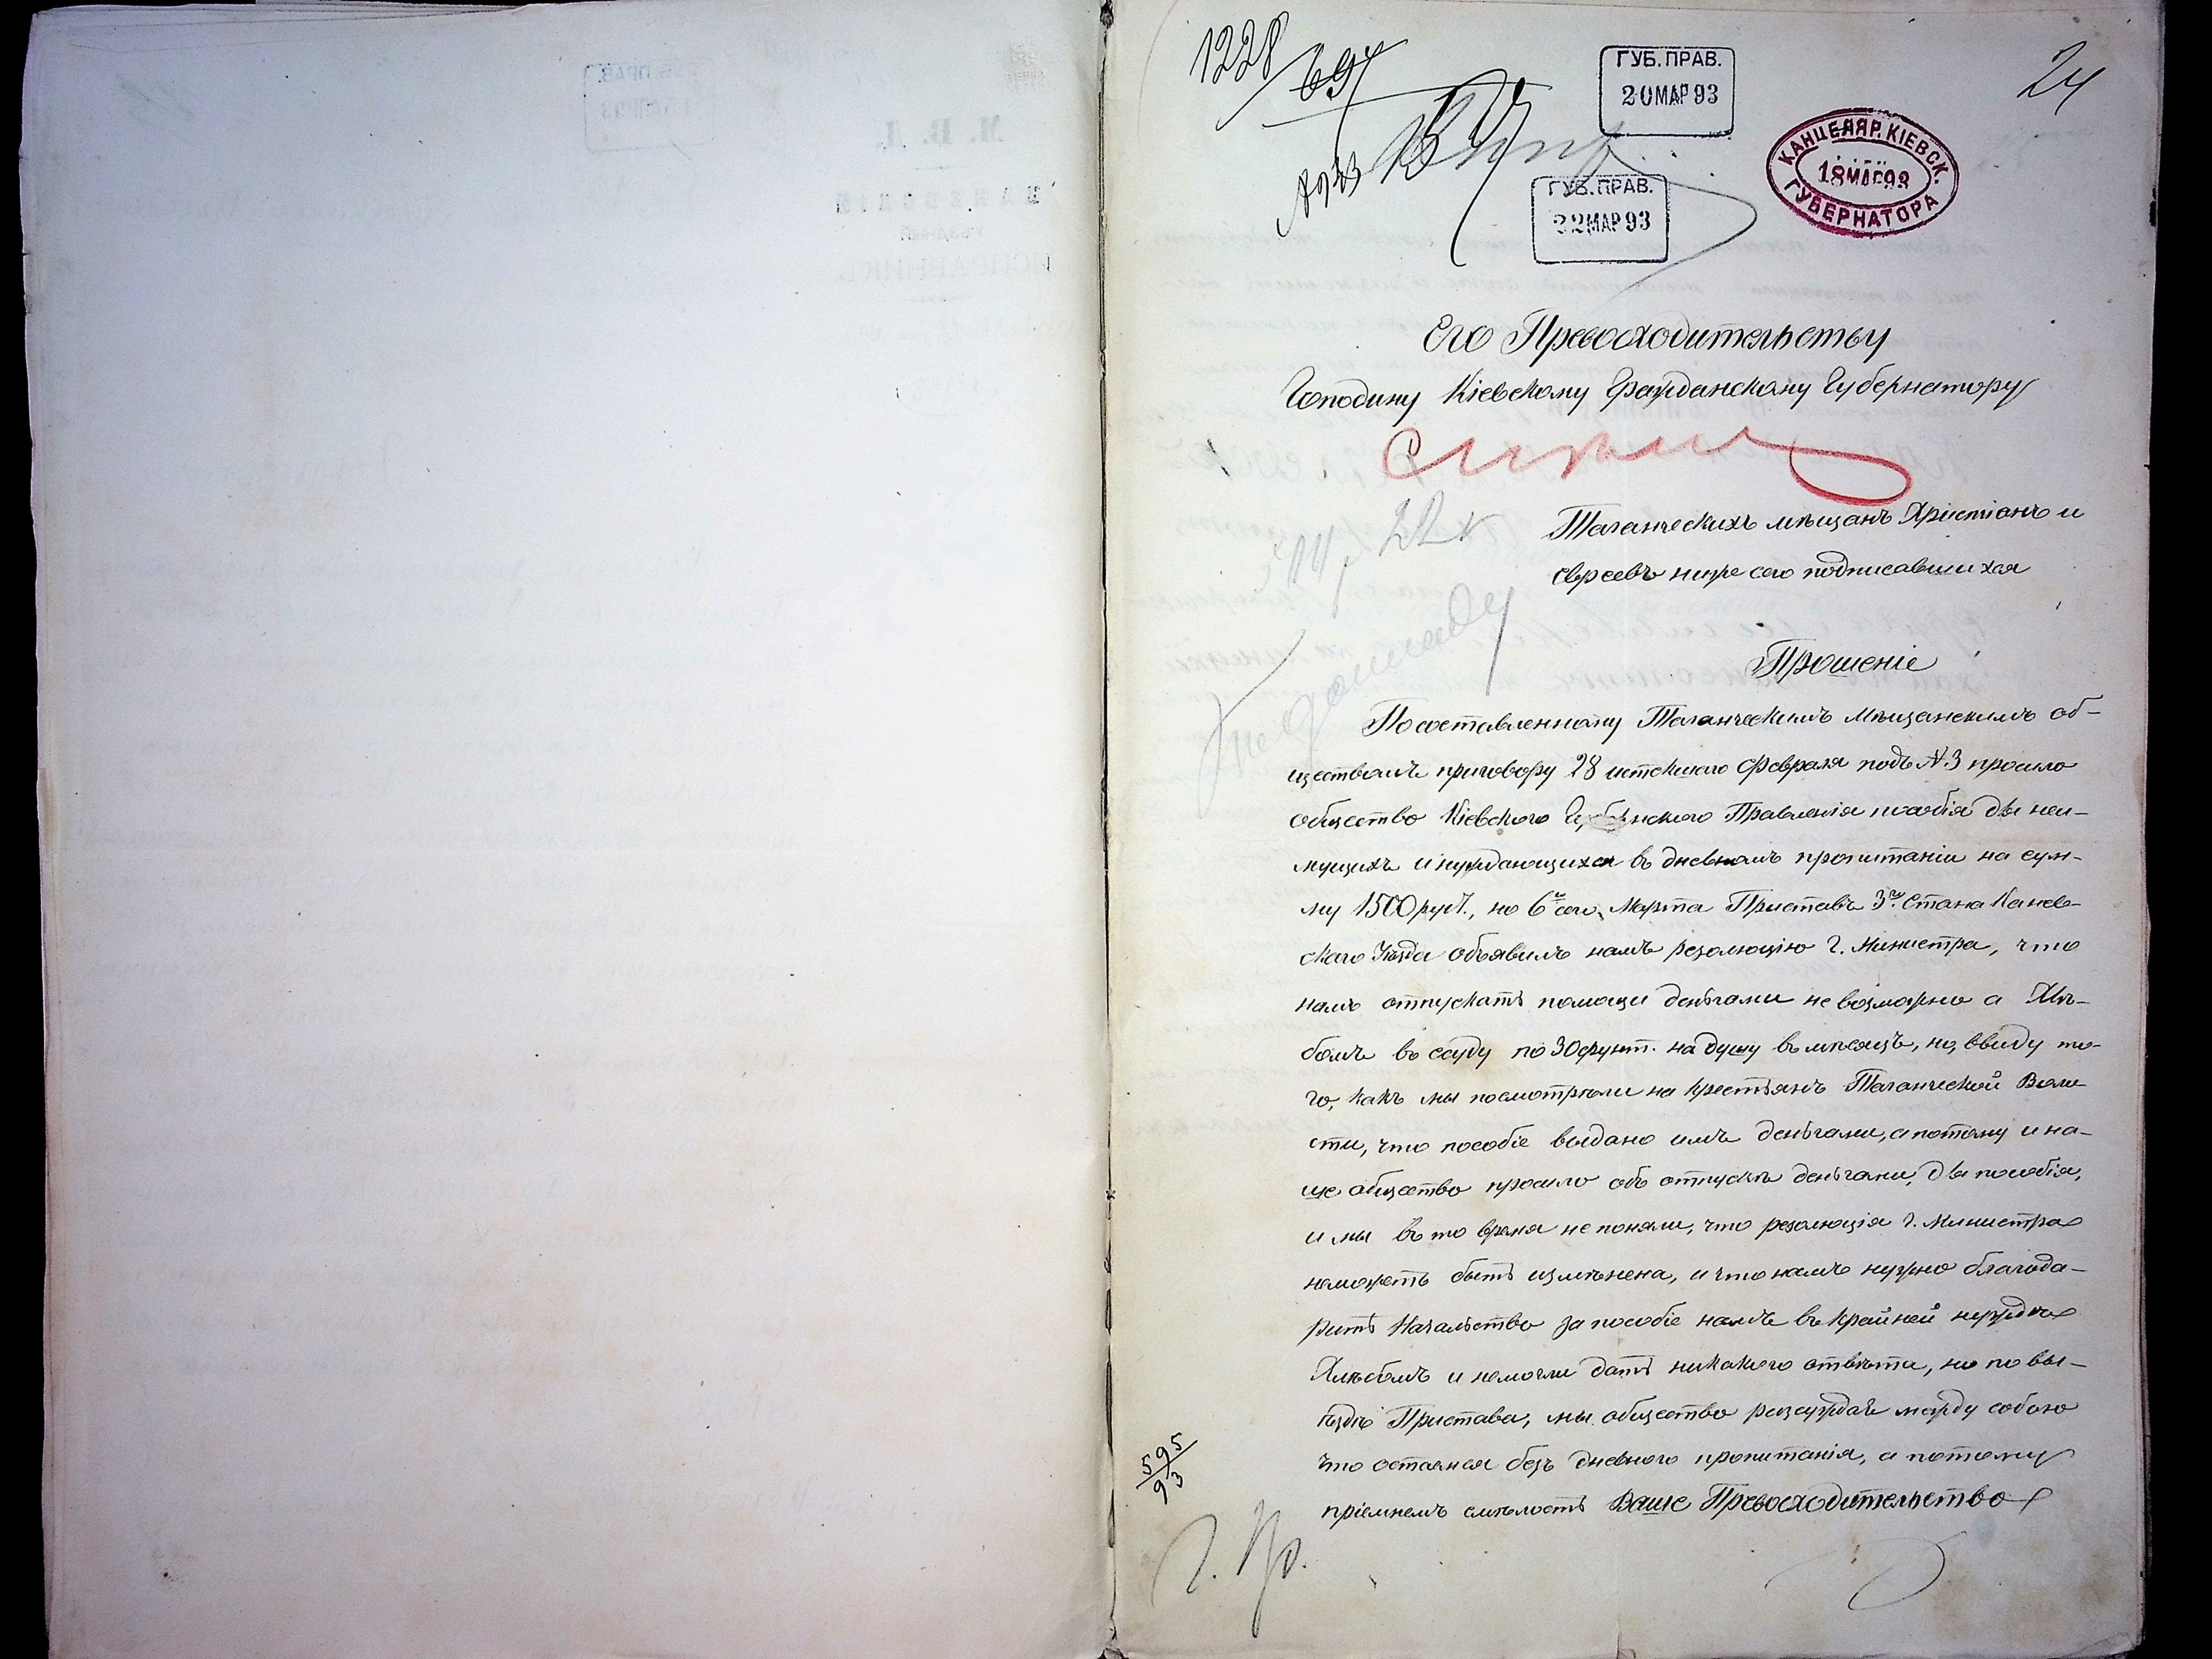 1228
697
24
ГУБ. ПРАВ.
20 МАР 93
КАНЦЕЛЯР. КІЕВСК.
18 МАР 93
ГУБЕРНАТОРА
ГУБ. ПРАВ.
22 МАР 93
Его Превосходительству
Господину Кіевскому Гражданскому Губернатору
Таганческихъ мѣщанъ Христіанъ и
евреевъ ниже сего подписавшихся
Прошеніе
По составленному Таганческимъ мѣщанскимъ об-
ществомъ приговору 28 истекшаго Февраля подъ №3 просило
общество Кіевского Губернского Правленія пособія для неи-
мущихъ и нуждающихся въ дневномъ пропитаніи на сум-
му 1500 руб., но 6го сего Марта Приставъ 3го Стана Канев-
скаго Уѣзда объявилъ намъ резолюцію г. Министра, что
намъ отпускать помощи деньгами не возможно а Хлѣ-
бомъ въ ссуду по 30 фунт. на душу въ мѣсяцъ, но, ввиду то-
го, какъ мы посмотрѣли на крестьянъ Таганческой Воло-
сти, что пособіе выдано имъ деньгами, а потому и на-
ше общество просило объ отпускѣ деньгами для пособія,
и мы въ то время не поняли, что резолюція г. Министра
неможетъ быть измѣнена, и что намъ нужно благода-
рить Начальство за пособіе намъ въ крайней нуждѣ
Хлѣбомъ и немогли дать никакого отвѣта, но по вы-
ѣздѣ Пристава, мы общество разсуждая между собою
что остаемся безъ дневного пропитанія, а потому
пріемлемъ смѣлость Ваше Превосходительство
595
93